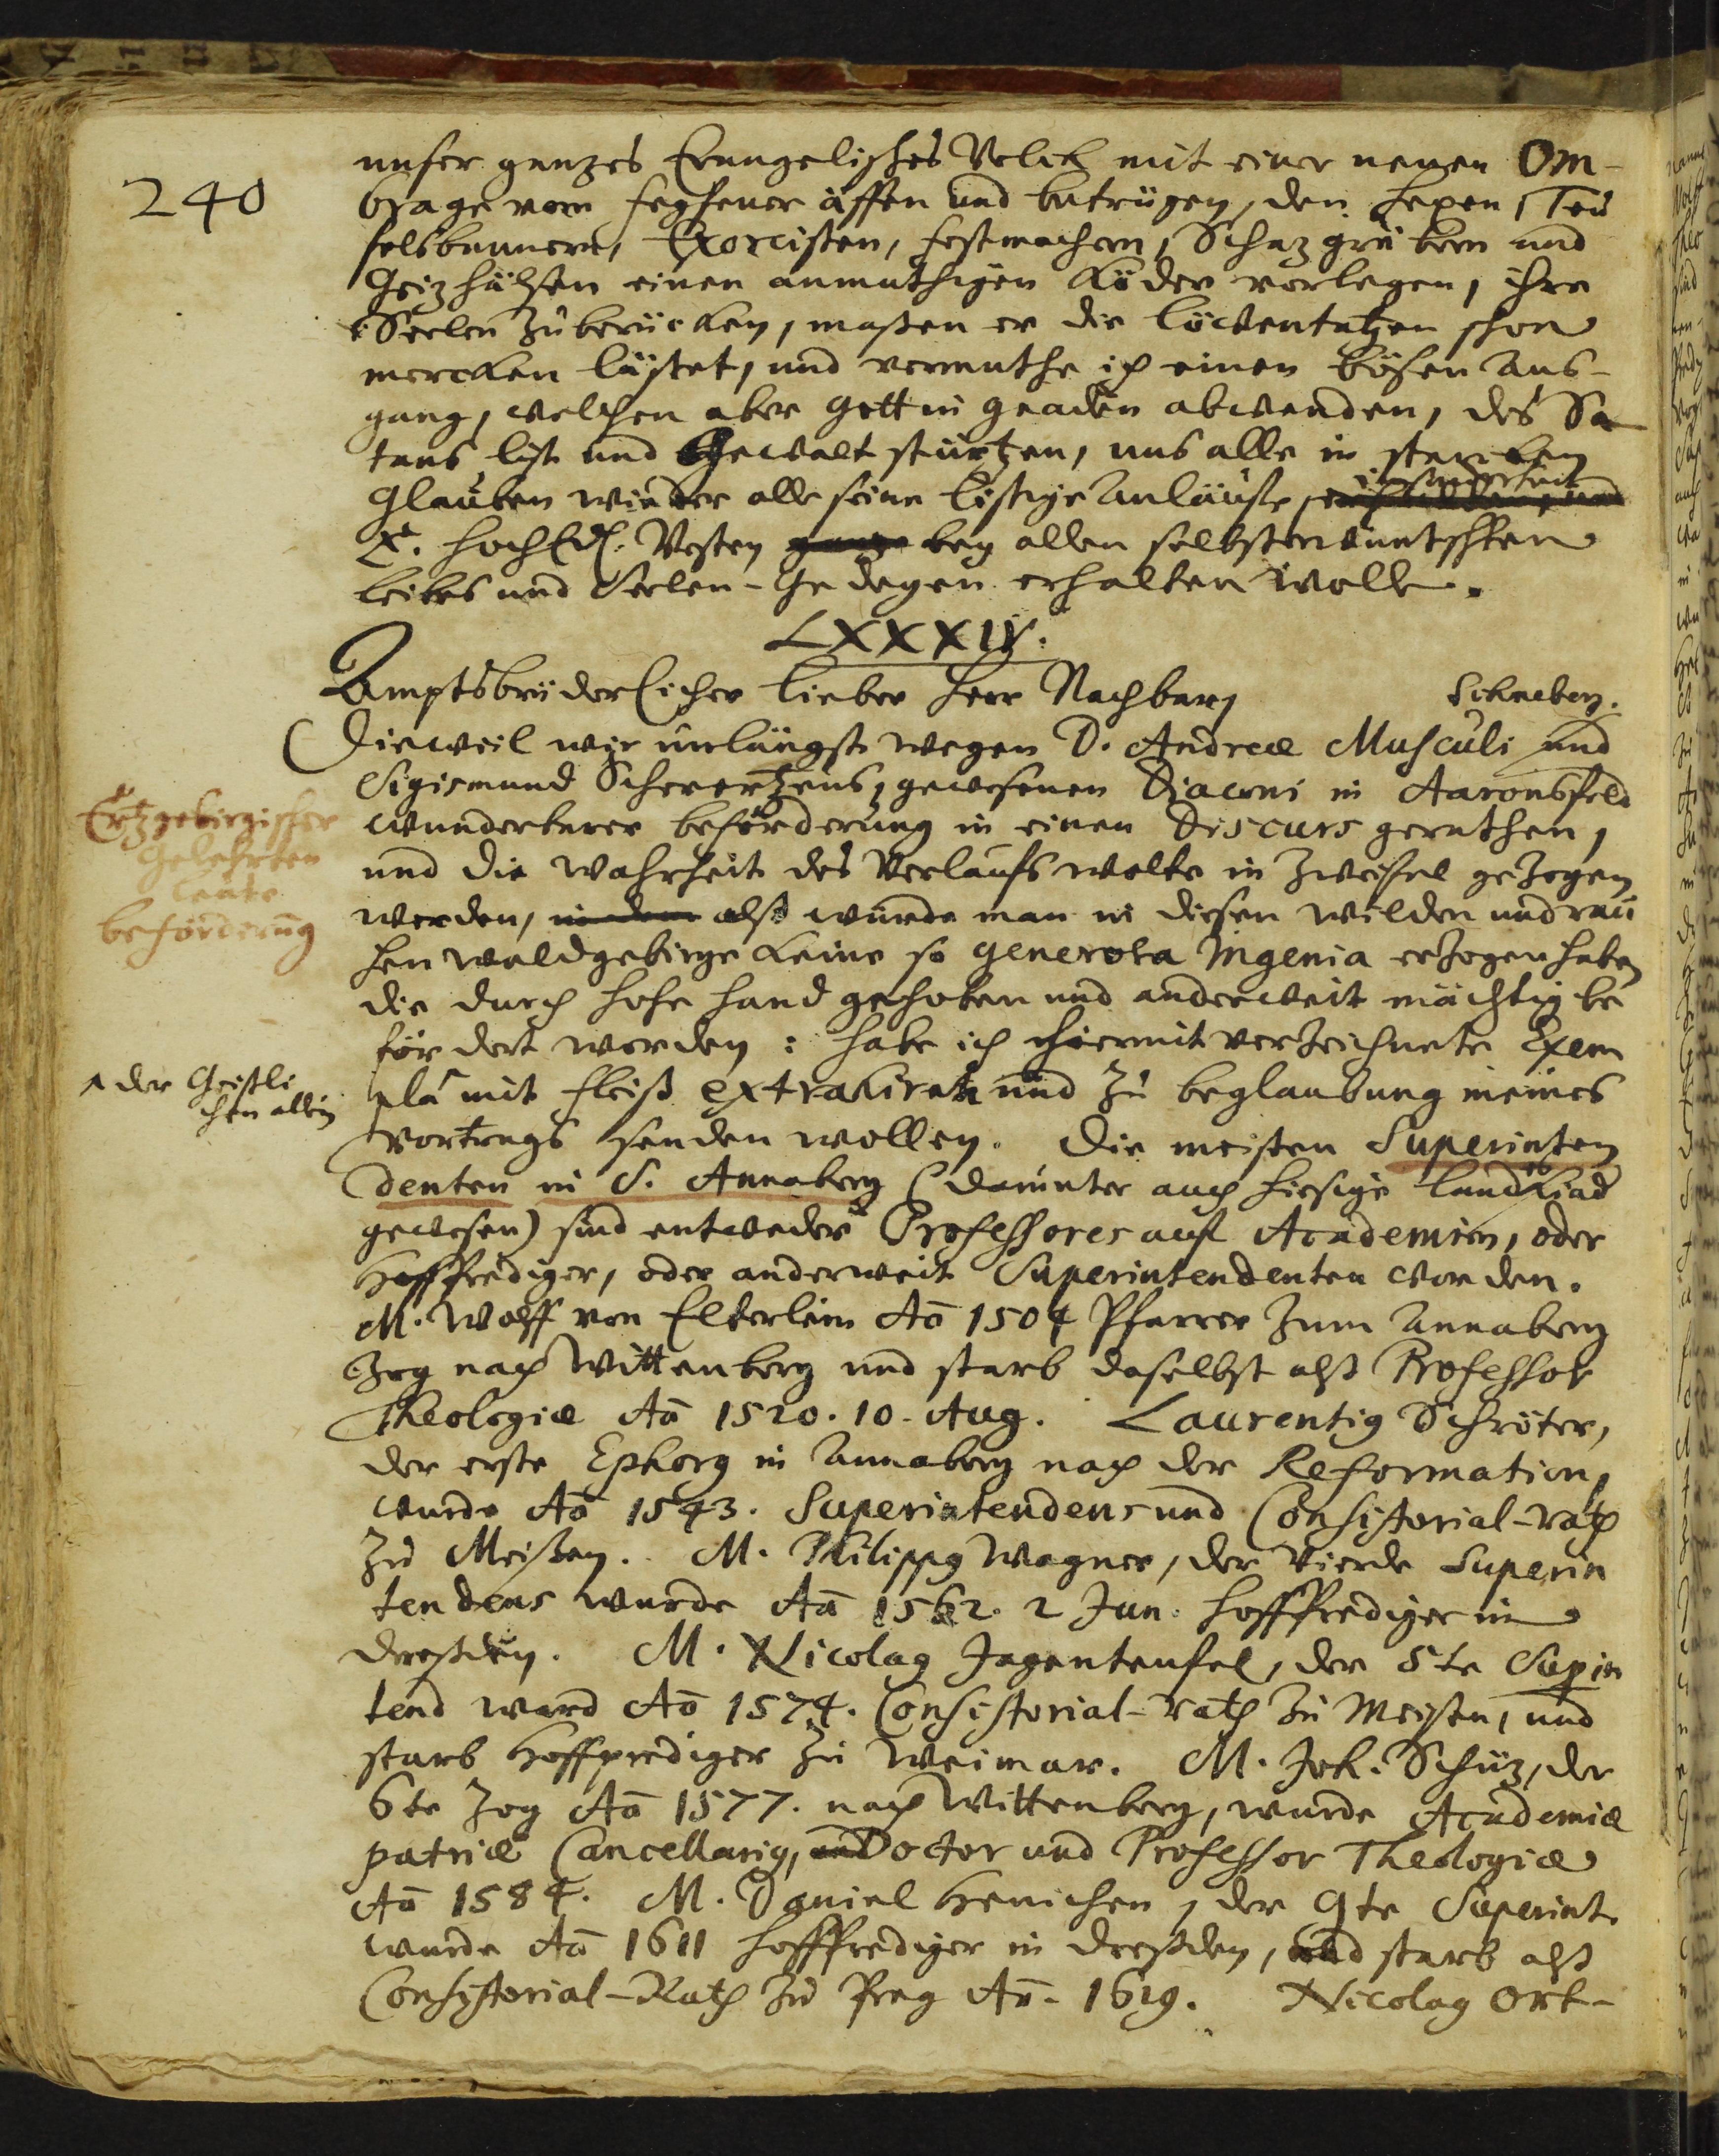 240
unser ganzes Evangelisches Volck mit einer neuen Om-
brage vom fegfeuer äffen und betrügen, den Hexen, Teu
felsbannern, Exorcisten, festmachern, Schazgräbern und
Geizhälsen einen anmuthigen Köder vorlegen, ihre
Seelen zu berücken, maßen er die löwentatzen schon
mercken läßet, und vermuthe ich einen bösen aus-
gang, welchen aber Gott in gnaden abwenden, des Sa
tans list und Gewalt stürtzen, uns alle in starcken
Glauben wieder alle seine listige Anläuffe, insonderheit
E. HochEdl. Vesten bey allen selbsterwüntschten
leibes und Seelen-Gedeyen erhalten wolle.
LXXXIV.
Amptsbrüderlicher lieber Herr Nachbar,
Scheeberg.
Dieweil wir unlängst wegen D. Andreæ Musculi und
Sigismund Scherertzens, gewesenen Diaconi in Aaronsfeld
wunderbarer beförderung in einen Discurs gerathen,
und die wahrheit des Verlaufs wolte in zweifel gezogen
werden, in dem alß würde man in diesen wilden und rau
hen waldgebirge keine so generosa Ingenia erzogen haben
die durch hohe hand gehoben und anderweit mächtig be
fördert worden: habe ich hiermit verzeichnete Exem
pla mit fleiß extrahiret und zu beglaubung meines
vortrags senden wollen. Die meisten Superinten
denten in S. Annaberg (darunter auch hiesige landskind
gewesen) sind entweder Professores auf Academien, oder
Hoffprediger, oder anderweit Superintendenten worden.
M. Wolff von Elterlein Aō 1504 Pfarrer zum Annaberg
zog nach Wittenberg und starb daselbst alß Professor
Theologiæ Aō 1520. 10. Aug. Laurentig Schröter,
der erste Ephorg in Annaberg nach der Reformation,
wurde Aō 1543. Superintendens und Consistorial-rath
zu Meißen. M. Philippg Wagner, der vierde Superin
tendens wurde Aō 1562. 2 Jun. hoffprediger in
dreßden. M. Nicolag Jagenteufel, der 5te Supin
tend ward Aō 1574. Consistorial-rath zu Meißen, und
starb Hoffprediger zu Weimar. M. Joh. Schüz, der
6te zog Aō 1577. nach Wittenberg, wurde Academiæ
patriæ Cancellarig, Doctor und Professor Theologiæ
Aō 1584. M. Daniel Henichen, der 9te Superint.
wurde Aō 1611 hoffprediger in dreßden, und starb alß
Consistorial-Rath zu Prag Aō. 1619. Nicolag Ort-
Ertzgebirgischer
Gelehrten
leute
beförderung
^ der Geistli
chen allein